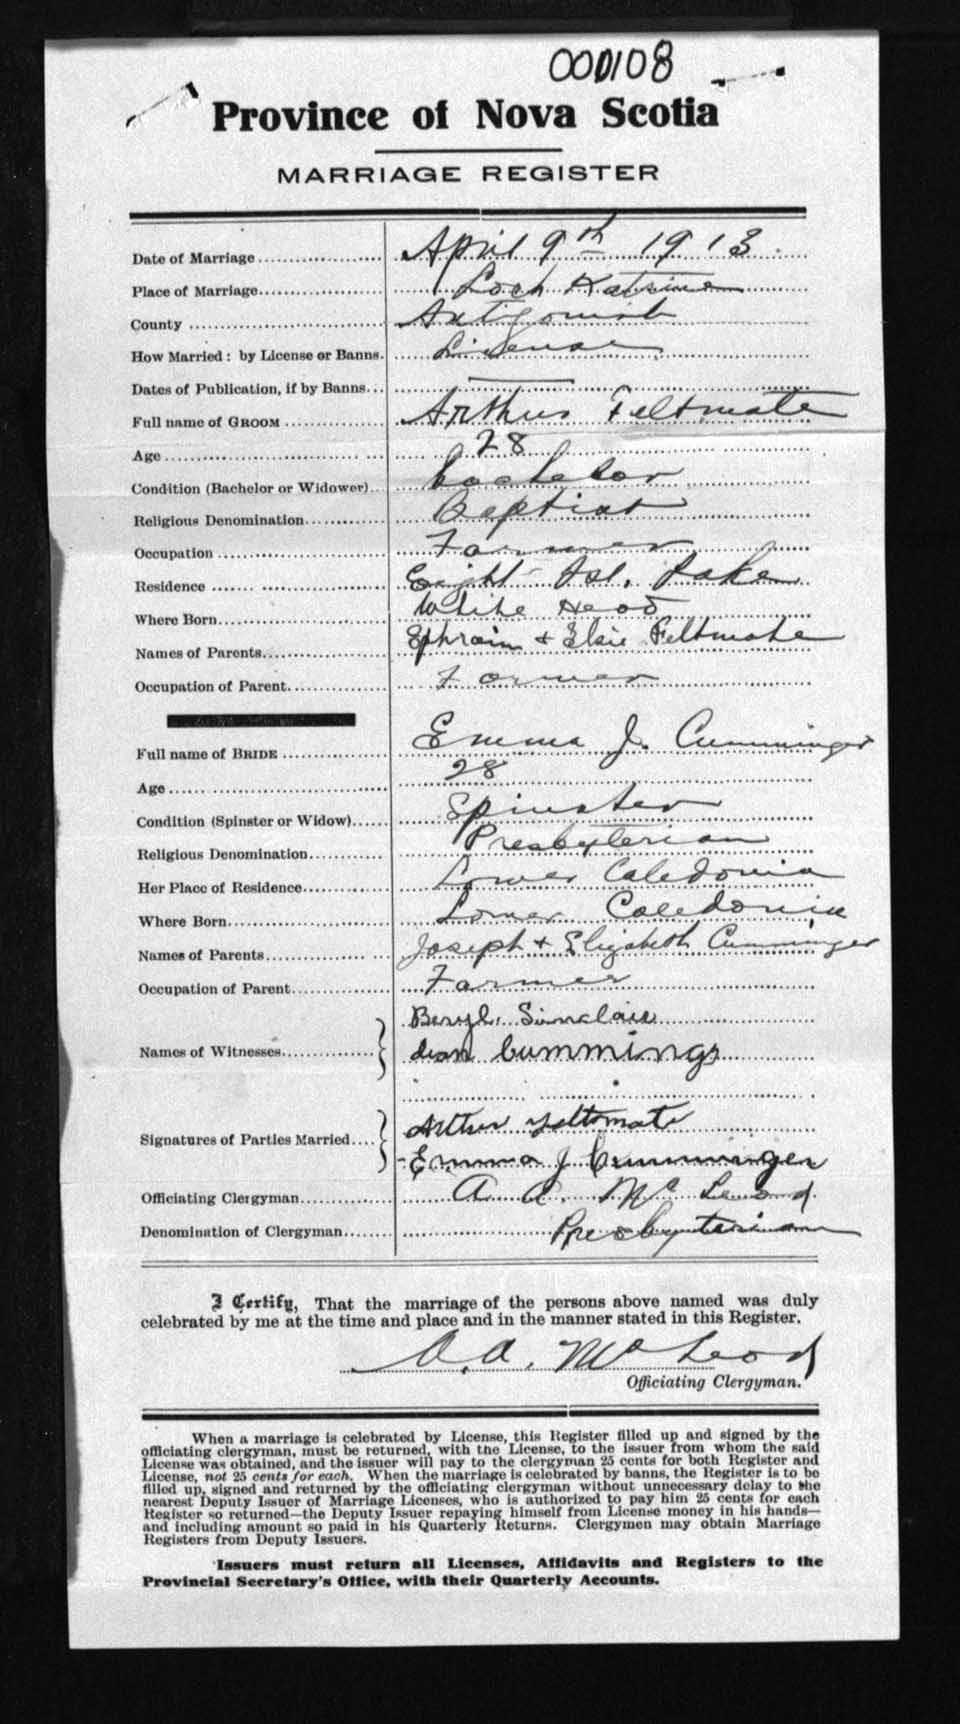 000108
Province of Nova Scotia
MARRIAGE REGISTER
Date of Marriage April 9th 1913
Place of Marriage Loch Katrine
County Antigonish
How Married: by License or Banns. License
Dates of Publication, if by Banns
Full name of GROOM Arthur Feltmate
Age 28
Condition (Bachelor or Widower) bachelor
Religious Denomination Baptist
Occupation Farmer
Residence Eight Isl. Lake
Where Born White Head
Names of Parents Ephraim & Elsie Feltmate
Occupation of Parent Farmer
Full name of BRIDE Emma J. Cumminger
Age 28
Condition (Spinster or Widow) Spinster
Religious Denomination Presbyterian
Her Place of Residence Lower Caledonia
Where Born Lower Caledonia
Names of Parents Joseph & Elizabeth Cumminger
Occupation of Parent Farmer
Beryl Sinclair
Names of Witnesses Cummings
Arthur Feltmate
Signatures of Parties Married
Emma J Cumminger
Officiating Clergyman A A. McLeod
Denomination of Clergyman Presbyterian
I Certify, That the marriage of the persons above named was duly
celebrated by me at the time and place and in the manner stated in this Register.
A. A. McLeod
Officiating Clergyman.
When a marriage is celebrated by License, this Register filled up and signed by the
officiating clergyman, must be returned, with the License, to the issuer from whom the said
License was obtained, and the issuer will pay to the clergyman 25 cents for both Register and
License, not 25 cents for each. When the marriage is celebrated by banns, the Register is to be
filled up, signed and returned by the officiating clergyman without unnecessary delay to the
nearest Deputy Issuer of Marriage Licenses, who is authorized to pay him 25 cents for each
Register so returned—the Deputy Issuer repaying himself from License money in his hands—
and including amount so paid in his Quarterly Returns. Clergymen may obtain Marriage
Registers from Deputy Issuers.
Issuers must return all Licenses, Affidavits and Registers to the
Provincial Secretary's Office, with their Quarterly Accounts.